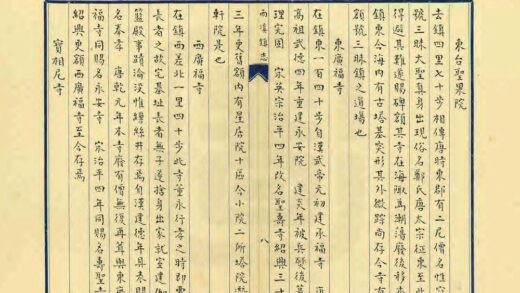 東台聖果院
去鎮四里七十步相傳唐時東郡有二尼僧名性
號三昧大聖真身出現俗名鄭氏唐太宗征東至此
得避其難遂賜碑額其寺在海隅為潮蕩廢後移來
鎮東今海內有古塔基突形其外微蹤尚存今寺有
額號三昧鎮之道場也
東廣福寺
在鎮東一百四十步自漢武帝元初建承福寺
高祖武德四年重建永安院 建炎年被兵燹後
理完固 宋英宗治平四年改名聖壽寺紹興三十
西溪鎮志
八
三年更舊額內有星居院十區今小院二所塔院
軒院是也
西廣福寺
在鎮西差北一里四十步此寺董永行孝之時即
長者之故宅基址長者無子遂捨身出家就室建伽
籃殿事蹟淪沒惟繰絲井存焉自漢建德年具奏開
名泰孝 唐乾元年本寺廢有僧無復再葺與東廣
福寺同賜名永安寺 宋治平四年同賜名壽聖寺
紹興更額西廣福寺至今存焉
寶相尼寺